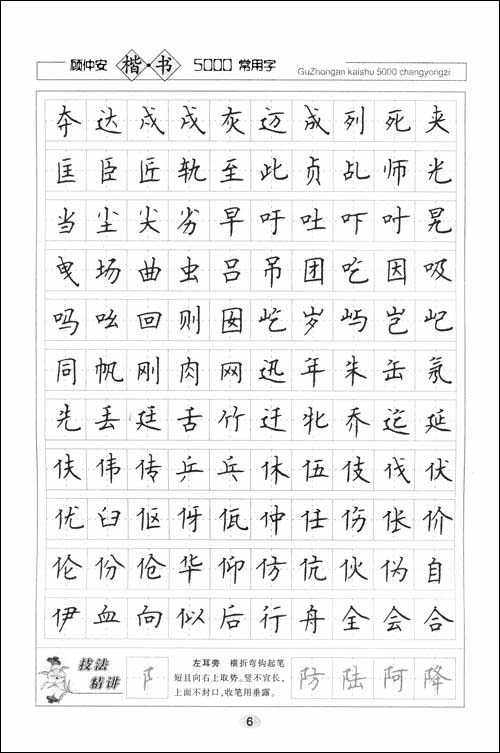 顾仲安 楷·书 5000 常用字
GuZhongan kaishu 5000 changyongzi
夺达成戌灰迈成列死夹
匡臣匠轨至此贞乩师光
当尘尖劣早吁吐吓叶晃
曳场曲虫吕吊团吃因吸
吗吆回则囡屹岁屿岂屺
同帆刚肉网迅年朱缶氖
先丢廷舌竹迁牝乔迄延
伕伟传乒乓休伍伎伐伏
优臼伛伢佤仲任伤伥价
伦份伧华仰仿伉伙伪自
伊血向似后行舟全会合
技法
精讲
阝
左耳旁 横折弯钩起笔
短且向右上取势。竖不宜长,
上面不封口,收笔用垂露。
防陆阿降
6